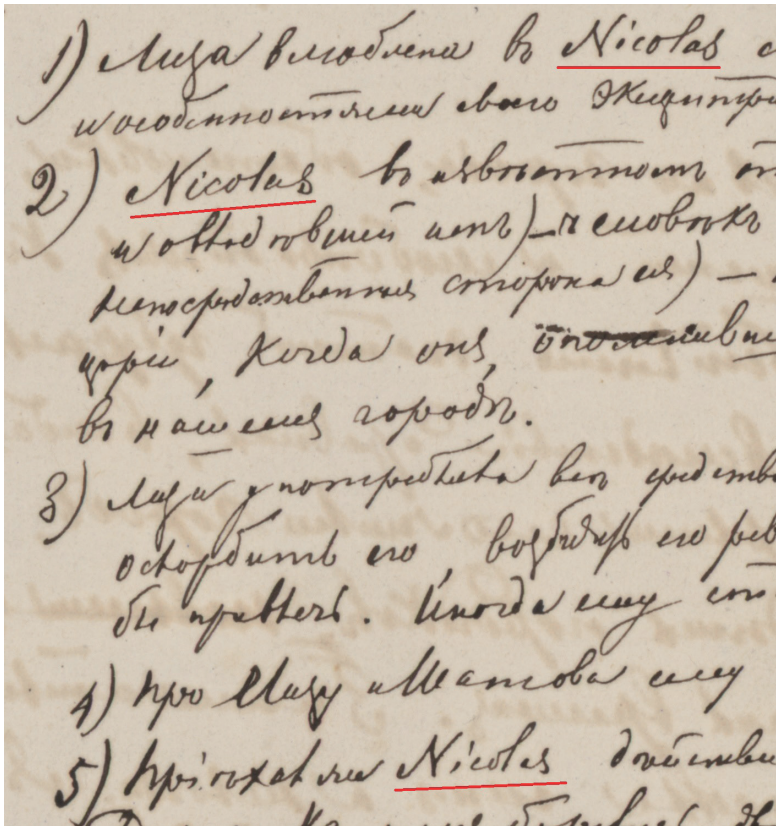 1) Лиза влюблена въ Nicolas с
и особенностями своего Эксцентри
2) Nicolas въ извѣстномъ от
и овладѣвшей имъ) — человѣкъ
непосредственная сторона ея) —
церкви, когда онъ,
въ нашемъ городѣ.
3) Лиза употребила всѣ средства
оскорбить его, возбудить его рев
бы привлечь. Иногда ему
4) Про Лизу и Шатова ему
5) Пріѣхавши Nicolas действи